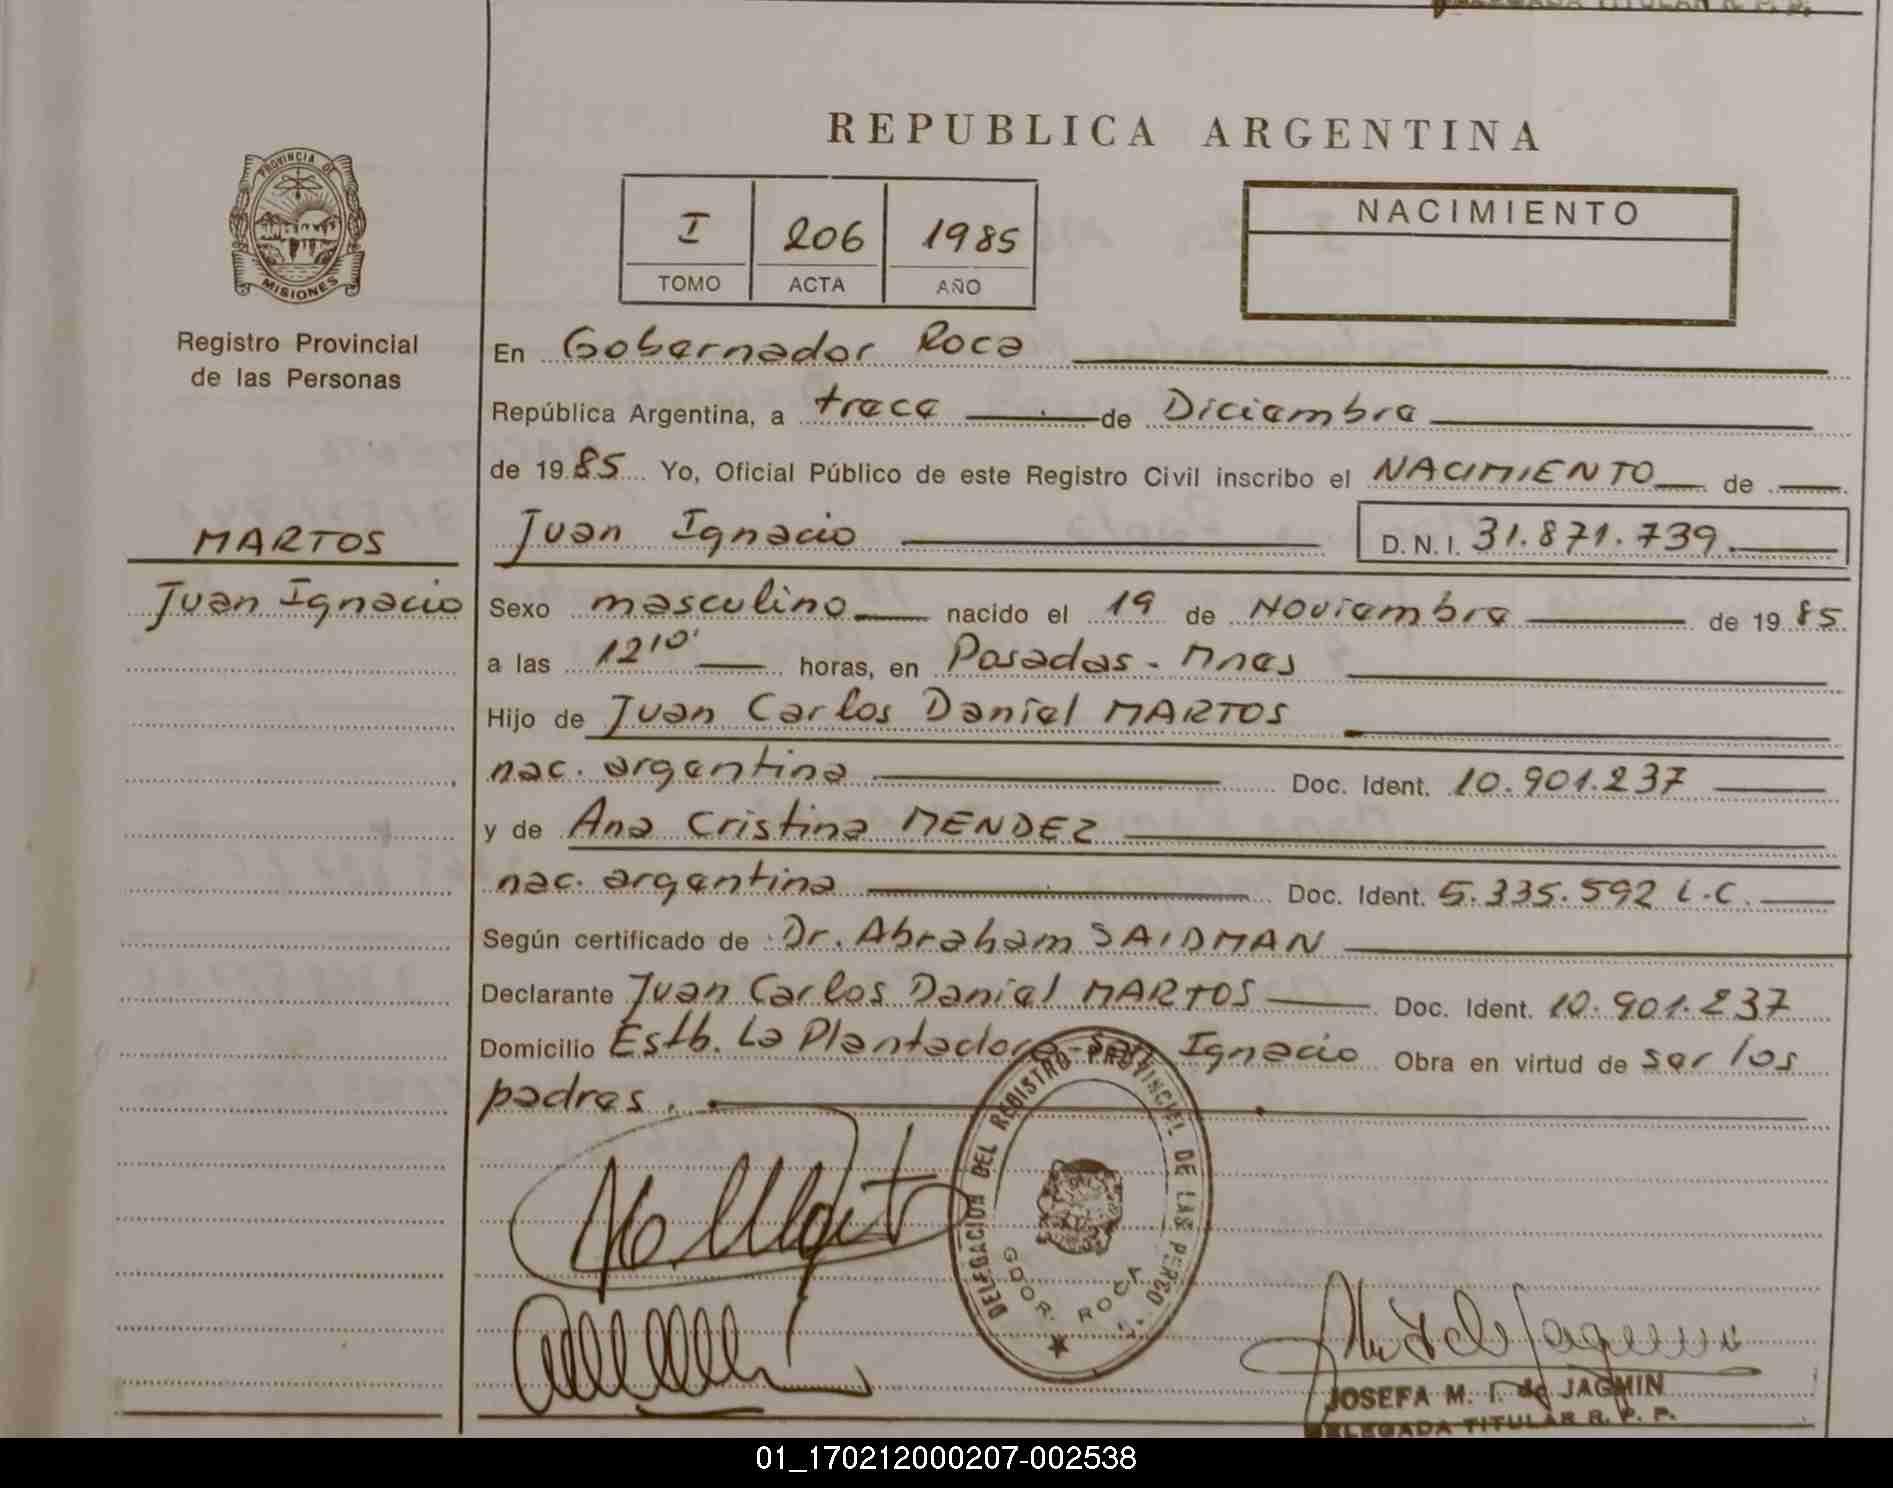 DELEGADA TITULAR R. P. P.
REPUBLICA ARGENTINA
PROVINCIA DE
MISIONES
Registro Provincial
de las Personas
I 206 1985
TOMO ACTA AÑO
NACIMIENTO
En Gobernador Roca
República Argentina, a trece de Diciembre
de 19 85 Yo, Oficial Público de este Registro Civil inscribo el NACIMIENTO de
MARTOS
Juan Ignacio D. N. I. 31.871.739
Juan Ignacio
Sexo masculino nacido el 19 de Noviembre de 19 85
a las 12 10' horas, en Posadas - Mnes
Hijo de Juan Carlos Daniel MARTOS
nac. argentina Doc. Ident. 10.901.237
y de Ana Cristina MENDEZ
nac. argentina Doc. Ident. 5.335.592 L.C.
Según certificado de Dr. Abraham SAIDMAN
Declarante Juan Carlos Daniel MARTOS Doc. Ident. 10.901.237
Domicilio Estb. La Plantadora - San Ignacio Obra en virtud de ser los
padres.
DELEGACION DEL REGISTRO PROVINCIAL DE LAS PERSO
GDOR. ROCA
JOSEFA M. T. de JAGMIN
DELEGADA TITULAR R. P. P.
01_170212000207-002538